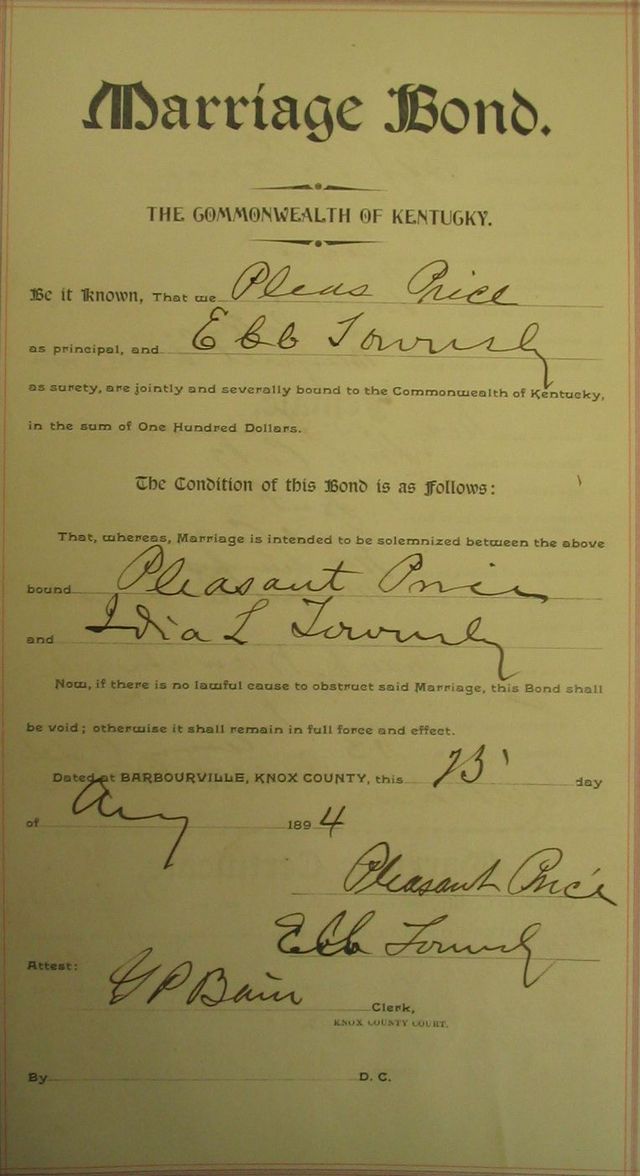 Marriage Bond.
THE COMMONWEALTH OF KENTUCKY.
Be it Known, That we Pleas Price
as principal, and Ebb Townsly
as surety, are jointly and severally bound to the Commonwealth of Kentucky,
in the sum of One Hundred Dollars.
The Condition of this Bond is as Follows:
That, whereas, Marriage is intended to be solemnized between the above
bound Pleasant Price
and Idia L Townsly
Now, if there is no lawful cause to obstruct said Marriage, this Bond shall
be void; otherwise it shall remain in full force and effect.
Dated at BARBOURVILLE, KNOX COUNTY, this day
of Aug 1894
Pleasant Price
Ebb Townsly
Attest:
G P Bain Clerk,
KNOX COUNTY COURT.
By D. C.